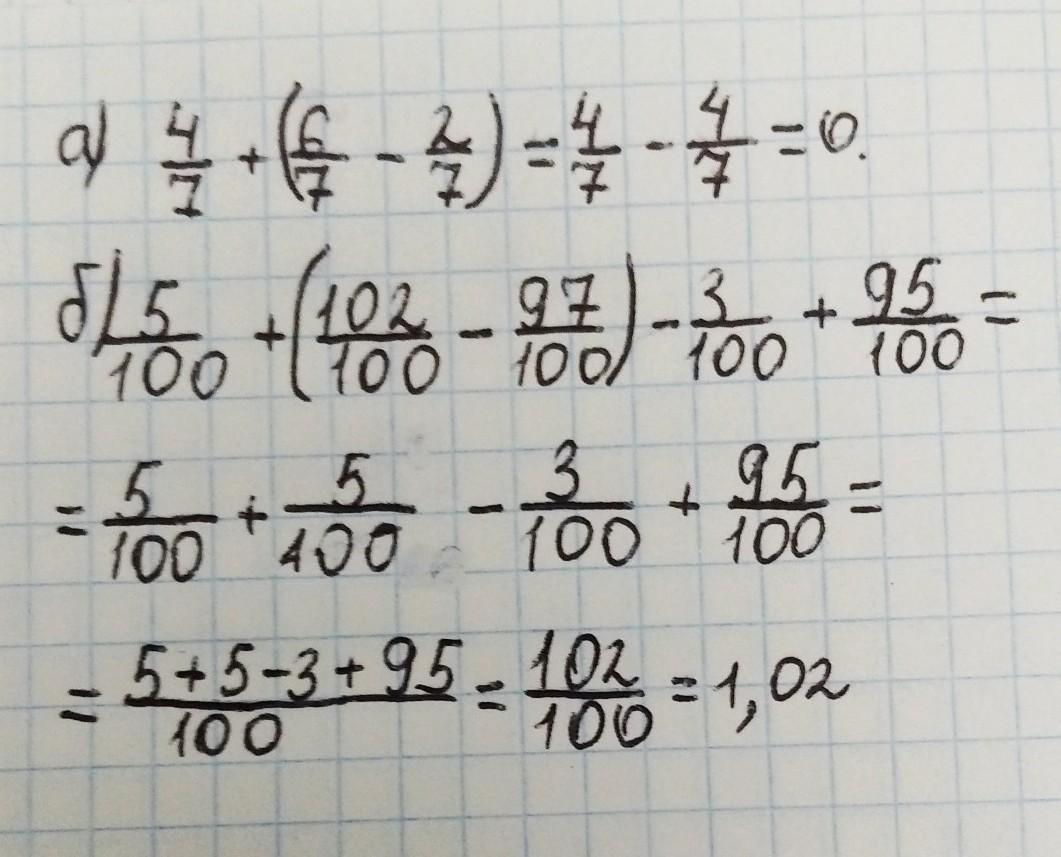 а) 4/7 + (6/7 - 2/7) = 4/7 - 4/7 = 0.
б) 5/100 + (102/100 - 97/100) - 3/100 + 95/100 =
= 5/100 + 5/100 - 3/100 + 95/100 =
= 5+5-3+95/100 = 102/100 = 1,02